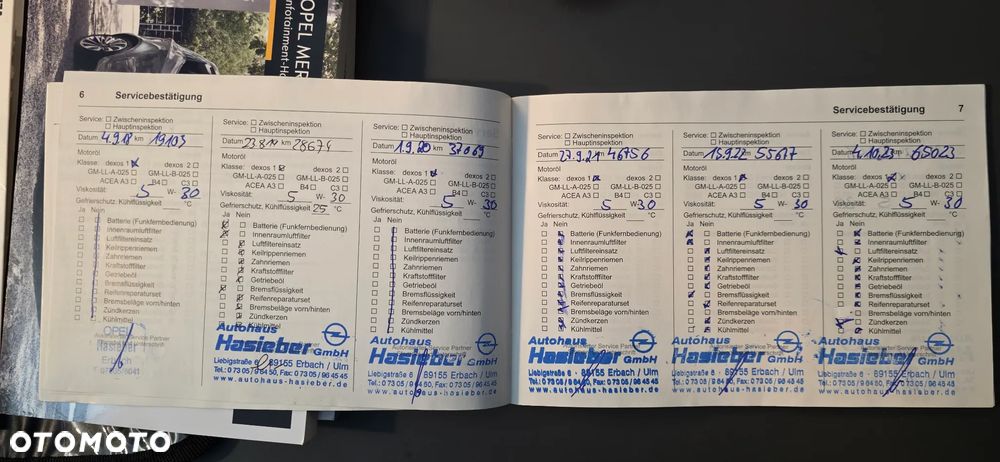 OPEL MER
Infotainment-Ha
6 Servicebestätigung
Service: ☐ Zwischeninspektion
☐ Hauptinspektion
Datum 4.9.18 km 19103
Motoröl
Klasse: dexos 1 dexos 2
GM-LL-A-025 GM-LL-B-025
ACEA A3 B4 C3
Viskosität: 5 W- 30
Gefrierschutz, Kühlflüssigkeit °C
Ja Nein
Batterie (Funkfernbedienung)
Innenraumluftfilter
Luftfiltereinsatz
Keilrippenriemen
Zahnriemen
Kraftstofffilter
Getriebeöl
Bremsflüssigkeit
Reifenreparaturset
Bremsbeläge vorn/hinten
Zündkerzen
Kühlmittel
OPEL
Hasieber
Service: ☐ Zwischeninspektion
☐ Hauptinspektion
Datum 23.8.19 km 28674
Motoröl
Klasse: dexos 1 dexos 2
GM-LL-A-025 GM-LL-B-025
ACEA A3 B4 C3
Viskosität: 5 W- 30
Gefrierschutz, Kühlflüssigkeit 25 °C
Ja Nein
Batterie (Funkfernbedienung)
Innenraumluftfilter
Luftfiltereinsatz
Keilrippenriemen
Zahnriemen
Kraftstofffilter
Getriebeöl
Bremsflüssigkeit
Reifenreparaturset
Bremsbeläge vorn/hinten
Zündkerzen
Kühlmittel
Autohaus
Hasieber GmbH
Liebigstraße 6 · 89155 Erbach / Ulm
Tel.: 0 73 05 / 96 4 50, Fax: 0 73 05 / 96 45 45
www.autohaus-hasieber.de
Service: ☐ Zwischeninspektion
☐ Hauptinspektion
Datum 1.9.20 km 37069
Motoröl
Klasse: dexos 1 dexos 2
GM-LL-A-025 GM-LL-B-025
ACEA A3 B4 C3
Viskosität: 5 W- 30
Gefrierschutz, Kühlflüssigkeit °C
Ja Nein
Batterie (Funkfernbedienung)
Innenraumluftfilter
Luftfiltereinsatz
Keilrippenriemen
Zahnriemen
Kraftstofffilter
Getriebeöl
Bremsflüssigkeit
Reifenreparaturset
Bremsbeläge vorn/hinten
Zündkerzen
Kühlmittel
Autohaus
Hasieber GmbH
Liebigstraße 6 · 89155 Erbach / Ulm
Tel.: 0 73 05 / 96 4 50, Fax: 0 73 05 / 96 45 45
www.autohaus-hasieber.de
Servicebestätigung 7
Service: ☐ Zwischeninspektion
☐ Hauptinspektion
Datum 27.9.21 km 46756
Motoröl
Klasse: dexos 1 dexos 2
GM-LL-A-025 GM-LL-B-025
ACEA A3 B4 C3
Viskosität: 5 W- 30
Gefrierschutz, Kühlflüssigkeit °C
Ja Nein
Batterie (Funkfernbedienung)
Innenraumluftfilter
Luftfiltereinsatz
Keilrippenriemen
Zahnriemen
Kraftstofffilter
Getriebeöl
Bremsflüssigkeit
Reifenreparaturset
Bremsbeläge vorn/hinten
Zündkerzen
Kühlmittel
Autohaus
Hasieber GmbH
Liebigstraße 6 · 89155 Erbach / Ulm
Tel.: 0 73 05 / 96 4 50, Fax: 0 73 05 / 96 45 45
www.autohaus-hasieber.de
Service: ☐ Zwischeninspektion
☐ Hauptinspektion
Datum 15.9.22 km 55677
Motoröl
Klasse: dexos 1 dexos 2
GM-LL-A-025 GM-LL-B-025
ACEA A3 B4 C3
Viskosität: 5 W- 30
Gefrierschutz, Kühlflüssigkeit °C
Ja Nein
Batterie (Funkfernbedienung)
Innenraumluftfilter
Luftfiltereinsatz
Keilrippenriemen
Zahnriemen
Kraftstofffilter
Getriebeöl
Bremsflüssigkeit
Reifenreparaturset
Bremsbeläge vorn/hinten
Zündkerzen
Kühlmittel
Autohaus
Hasieber GmbH
Liebigstraße 6 · 89155 Erbach / Ulm
Tel.: 0 73 05 / 96 4 50, Fax: 0 73 05 / 96 45 45
www.autohaus-hasieber.de
Service: ☐ Zwischeninspektion
☐ Hauptinspektion
Datum 4.10.23 km 65023
Motoröl
Klasse: dexos 1 dexos 2
GM-LL-A-025 GM-LL-B-025
ACEA A3 B4 C3
Viskosität: 5 W- 30
Gefrierschutz, Kühlflüssigkeit °C
Ja Nein
Batterie (Funkfernbedienung)
Innenraumluftfilter
Luftfiltereinsatz
Keilrippenriemen
Zahnriemen
Kraftstofffilter
Getriebeöl
Bremsflüssigkeit
Reifenreparaturset
Bremsbeläge vorn/hinten
Zündkerzen
Kühlmittel
Autohaus
Hasieber GmbH
Liebigstraße 6 · 89155 Erbach / Ulm
Tel.: 0 73 05 / 96 4 50, Fax: 0 73 05 / 96 45 45
www.autohaus-hasieber.de
OTOMOTO